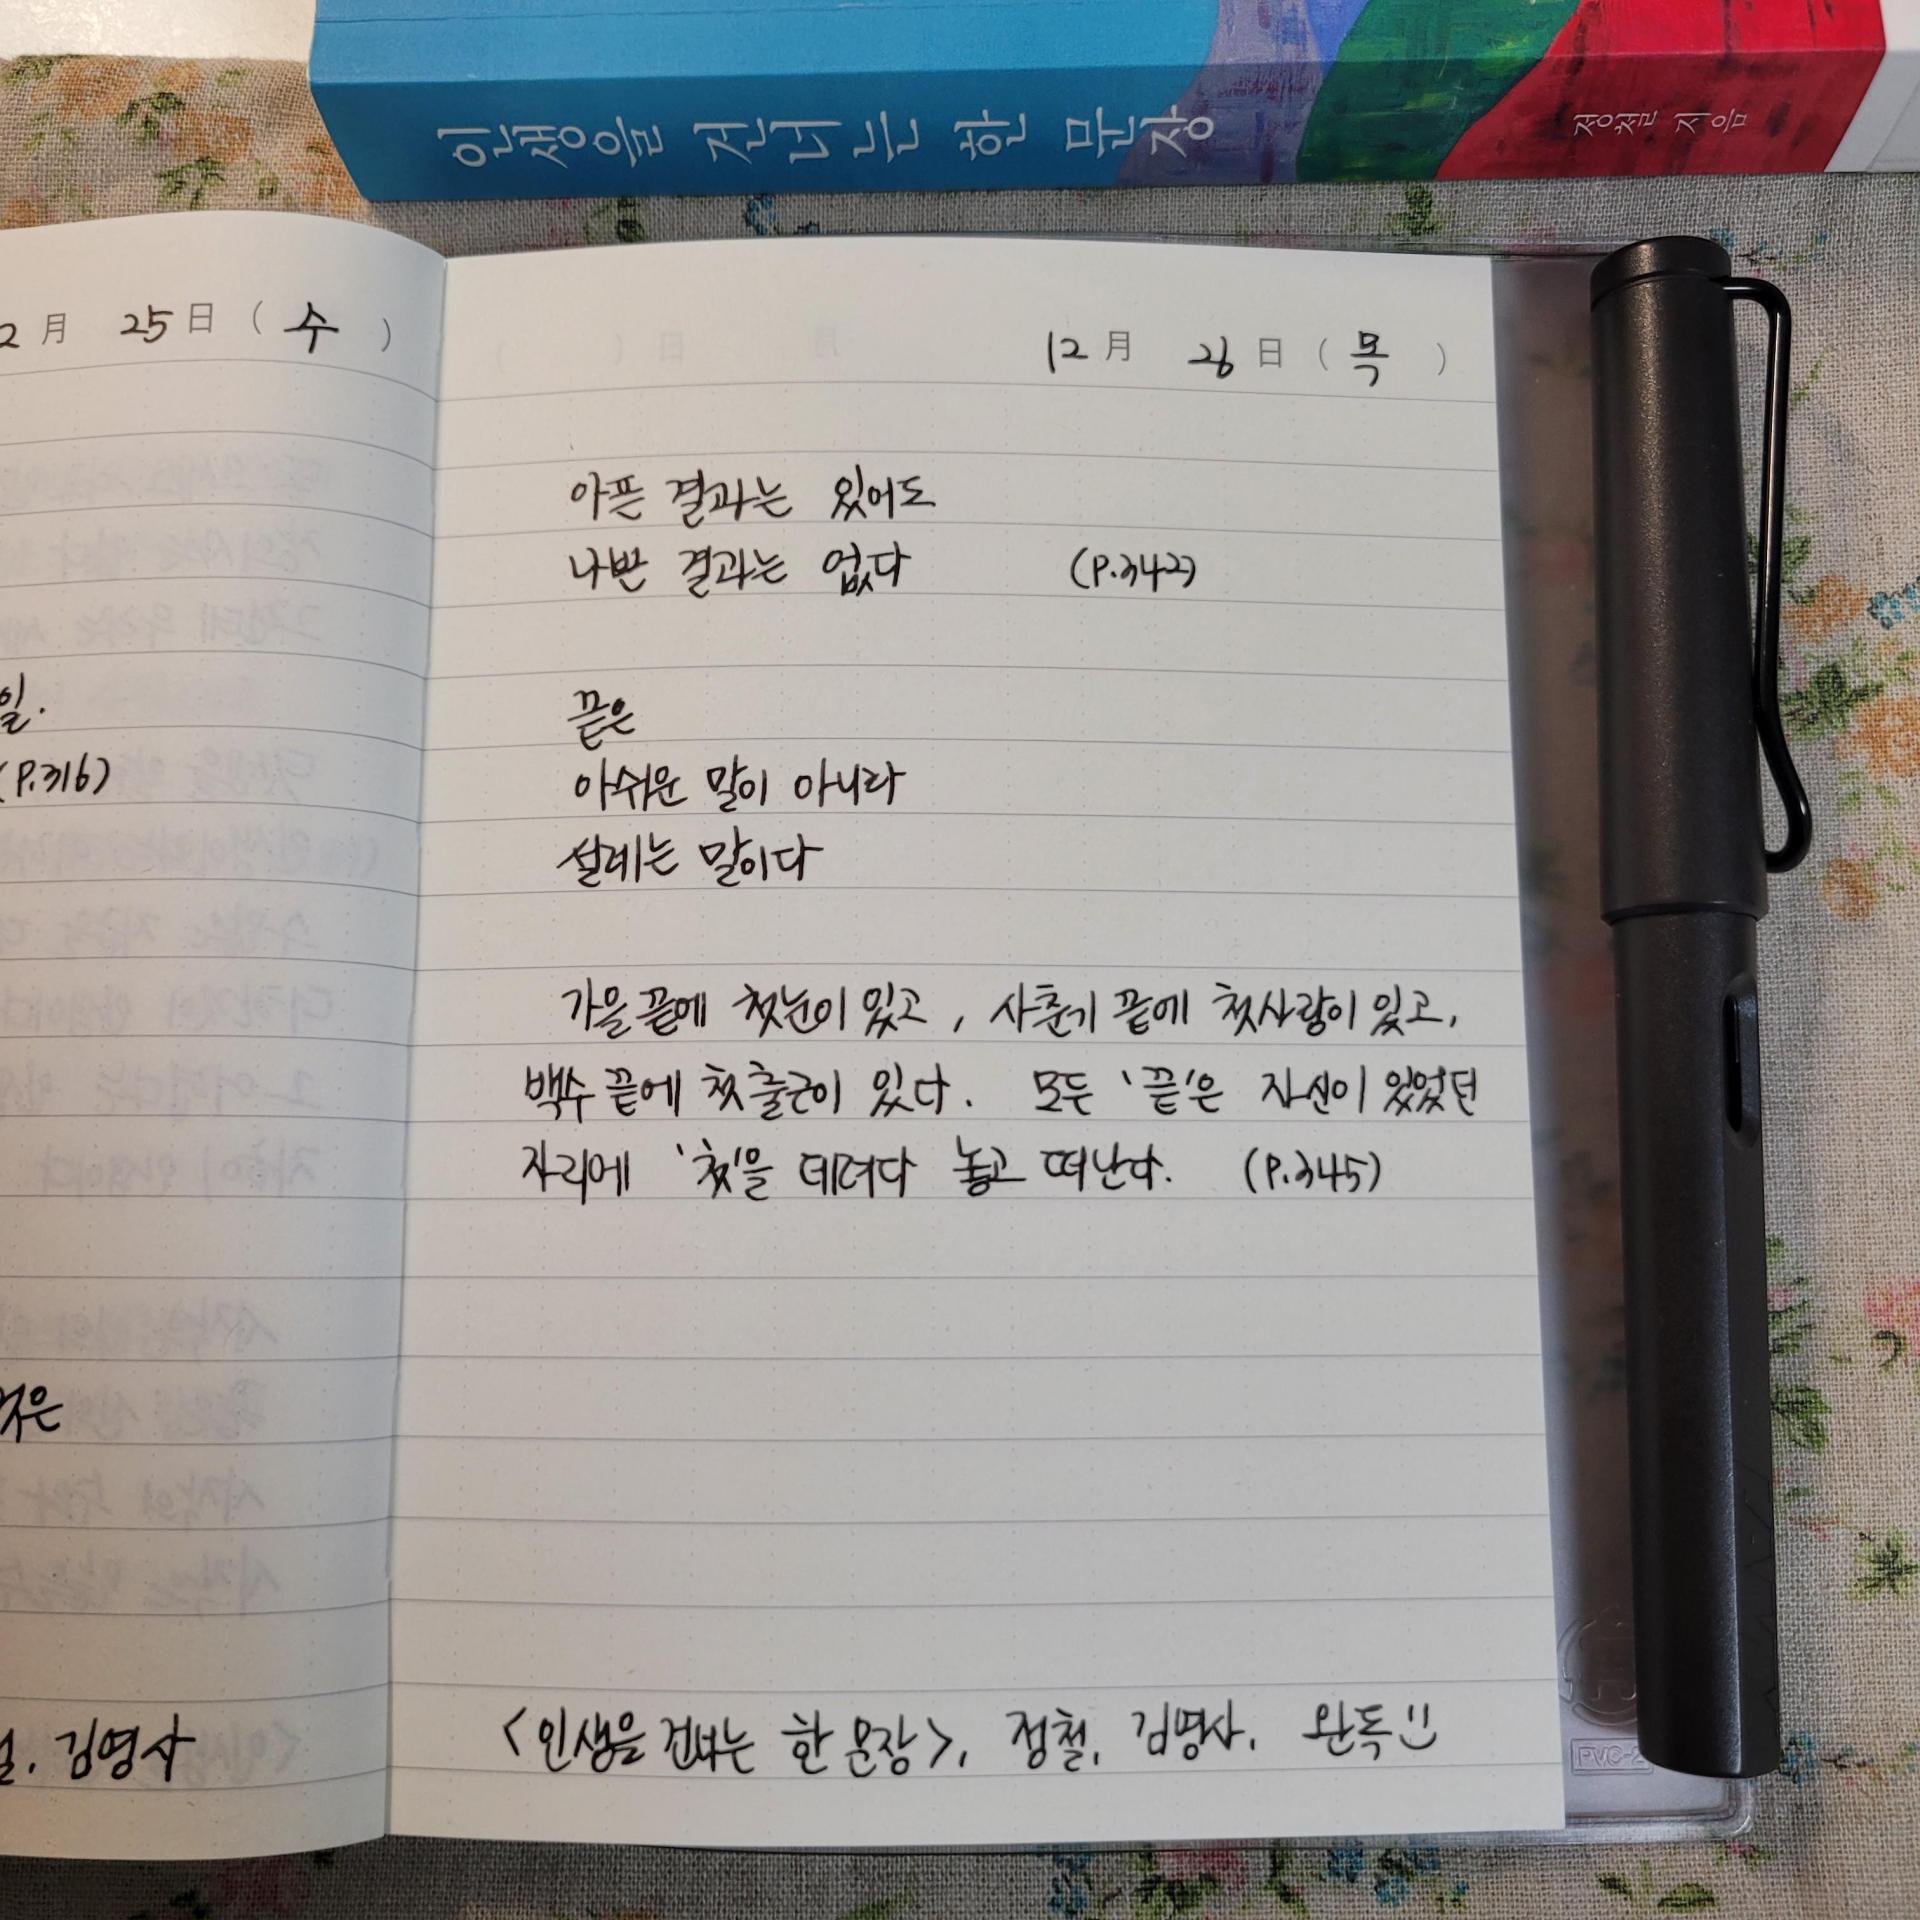 인생을 건너는 한 문장
정철 지음
2月 25日 (수)
일.
(P.316)
것은
김영사
12月 26日 (목)
아픈 결과는 있어도
나쁜 결과는 없다 (P.342)
끝은
아쉬운 말이 아니라
설레는 말이다
가을 끝에 첫눈이 있고, 사춘기 끝에 첫사랑이 있고,
백수 끝에 첫 출근이 있다. 모든 '끝'은 자신이 있었던
자리에 '첫'을 데려다 놓고 떠난다. (P.345)
<인생을 건너는 한 문장>, 정철, 김영사. 완독